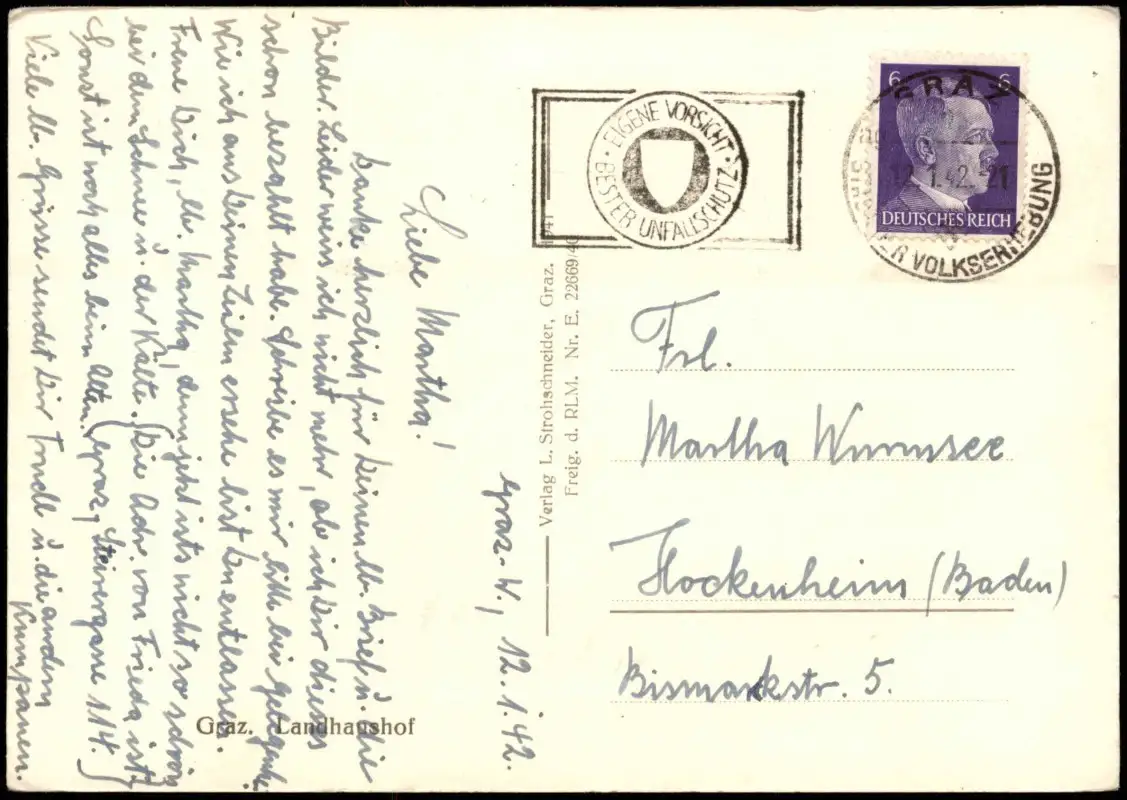 Graz-W, 12.1.42.
Liebe Martha!
Danke herzlich für Deinen lb. Brief u. die
Bilder. Leider weiss ich nicht mehr, ob ich Dir dieses
schon bezahlt habe. Schreibe es mir bitte bei Gelegenh.
Wie ich aus Deinen Zeilen ersehe bist Du entlassen.
Freue Dich, lb. Martha, denn jetzt ists nicht so schön
bei dem Schnee u. der Kälte. (Die Adr. von Frieda ist:
Sonst ist noch alles beim Alten. Graz, 114.)
Viele lb. Grüsse sendet Dir Trudl u. die andern
Kumpanen.
Graz. Landhaushof
Verlag L. Strohschneider, Graz. 1941
Freig. d. RLM. Nr. E. 22669/40
EIGENE VORSICHT
BESTER UNFALLSCHUTZ
6 6
GRAZ
12.1.42.-21
DEUTSCHES REICH
STADT DER VOLKSERHEBUNG
Frl.
Martha Wurmsee
Hockenheim (Baden)
Bismarkstr. 5.